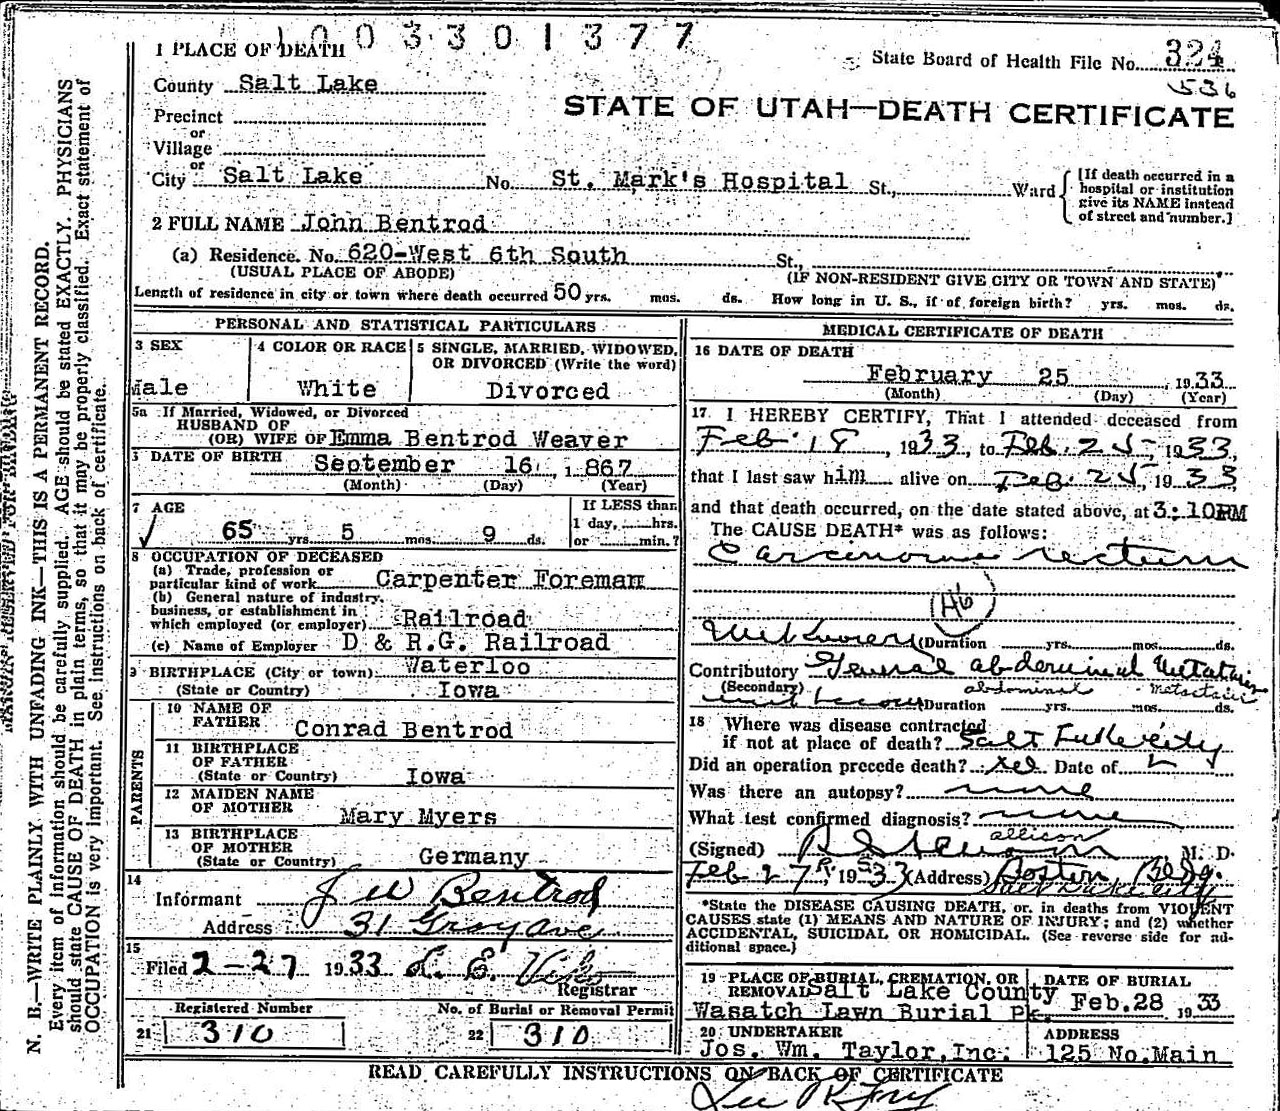 1003301377
1 PLACE OF DEATH
State Board of Health File No. 324
536
County Salt Lake
STATE OF UTAH—DEATH CERTIFICATE
Precinct
or
Village
or
City Salt Lake No. St. Mark's Hospital St., Ward
[If death occurred in a hospital or institution give its NAME instead of street and number.]
2 FULL NAME John Bentrod
(a) Residence. No. 620-West 6th South St.,
(USUAL PLACE OF ABODE) (IF NON-RESIDENT GIVE CITY OR TOWN AND STATE)
Length of residence in city or town where death occurred 50 yrs. mos. ds. How long in U. S., if of foreign birth? yrs. mos. ds.
PERSONAL AND STATISTICAL PARTICULARS
3 SEX
Male
4 COLOR OR RACE
White
5 SINGLE, MARRIED, WIDOWED, OR DIVORCED (Write the word)
Divorced
5a If Married, Widowed, or Divorced
HUSBAND OF
(OR) WIFE OF Emma Bentrod Weaver
DATE OF BIRTH September 16, 1867
(Month) (Day) (Year)
7 AGE
65 yrs. 5 mos. 9 ds.
If LESS than
1 day, hrs.
or min.?
8 OCCUPATION OF DECEASED
(a) Trade, profession or
particular kind of work Carpenter Foreman
(b) General nature of industry,
business, or establishment in
which employed (or employer) Railroad
(c) Name of Employer D & R.G. Railroad
9 BIRTHPLACE (City or town) Waterloo
(State or Country) Iowa
PARENTS
10 NAME OF
FATHER Conrad Bentrod
11 BIRTHPLACE
OF FATHER
(State or Country) Iowa
12 MAIDEN NAME
OF MOTHER Mary Myers
13 BIRTHPLACE
OF MOTHER
(State or Country) Germany
14
Informant J W Bentrod
Address 31 Gray Ave
15
Filed 2-27 1933 L. E.
Registrar
Registered Number No. of Burial or Removal Permit
21 310 22 310
MEDICAL CERTIFICATE OF DEATH
16 DATE OF DEATH
February 25, 1933
(Month) (Day) (Year)
17 I HEREBY CERTIFY, That I attended deceased from
Feb. 18, 1933, to Feb. 25, 1933,
that I last saw him alive on Feb. 25, 1933,
and that death occurred, on the date stated above, at 3:10 PM
The CAUSE DEATH* was as follows:
Carcinoma rectum
46
Unknown (Duration yrs. mos. ds.
Contributory General abdominal
(Secondary) abdominal
unknown Duration yrs. mos. ds.
18 Where was disease contracted
if not at place of death? Salt Lake City
Did an operation precede death? Date of
Was there an autopsy? none
What test confirmed diagnosis? none
allison
(Signed) M. D.
Feb 27, 1933 (Address) Boston Bldg.
Salt Lake City
*State the DISEASE CAUSING DEATH, or, in deaths from VIOLENT
CAUSES, state (1) MEANS AND NATURE OF INJURY; and (2) whether
ACCIDENTAL, SUICIDAL OR HOMICIDAL. (See reverse side for ad-
ditional space.)
19 PLACE OF BURIAL, CREMATION, OR
REMOVAL Salt Lake County
Wasatch Lawn Burial Pk.
DATE OF BURIAL
Feb. 28 1933
20 UNDERTAKER
Jos. Wm. Taylor, Inc.
ADDRESS
125 No. Main
READ CAREFULLY INSTRUCTIONS ON BACK OF CERTIFICATE
N. B.—WRITE PLAINLY WITH UNFADING INK—THIS IS A PERMANENT RECORD.
Every item of information should be carefully supplied. AGE should be stated EXACTLY. PHYSICIANS
should state CAUSE OF DEATH in plain terms, so that it may be properly classified. Exact statement of
OCCUPATION is very important. See instructions on back of certificate.
MARGIN RESERVED FOR BINDING